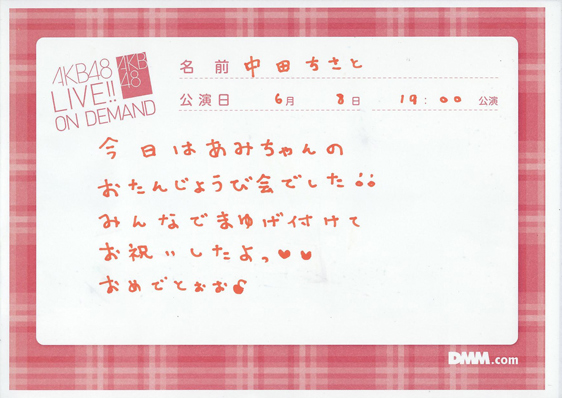 AKB48
LIVE!!
ON DEMAND
AKB
48
名 前 中田ちさと
公演日 6月 8日 19:00 公演
今日はあみちゃんの
おたんじょうび会でした!!
みんなでまゆげ付けて
お祝いしたよっ♥♥
おめでとぉぉ♪
DMM.com